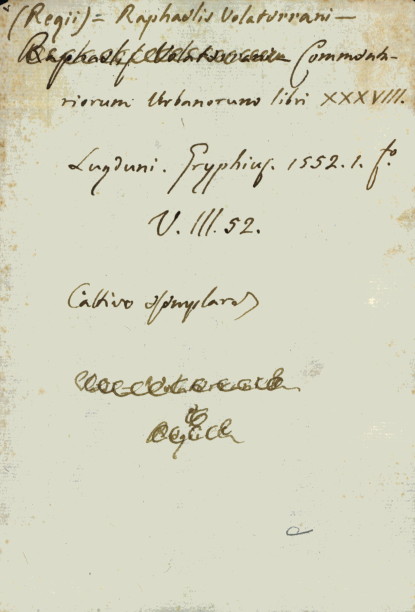 (Regii) = Raphaelis Volaterrani —
Raphaelis Volaterrani Commenta-
riorum Urbanorum libri XXXVIII.
Lugduni. Gryphius. 1552. 1. fo.
V. III. 52.
Cattivo esemplare